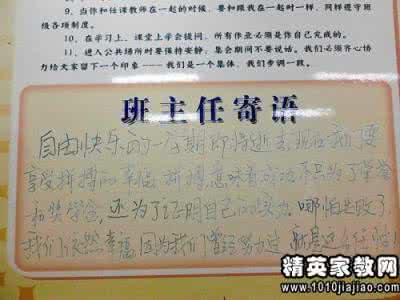 9、当你和任课教师在一起的时候,要和跟我在一起时一样,同样遵守班
级各项制度。
10、在学习上,课堂上学会提问,所有作业必须是你自己完成的。
11、进入公共场所时要保持安静;集会期间不要说话。我们必须齐心协
力给大家留下一个印象——我们是一个集体,我们步调一致。
班主任寄语
自由快乐的一星期即将逝去,现在我们要
享受拼搏的幸福,拼搏意味着成功,不只为了荣誉
和奖学金,还为了证明自己的实力。哪怕失败了
我们依然幸福,因为我们曾经努力过
精英家教网
www.1010jiajiao.com